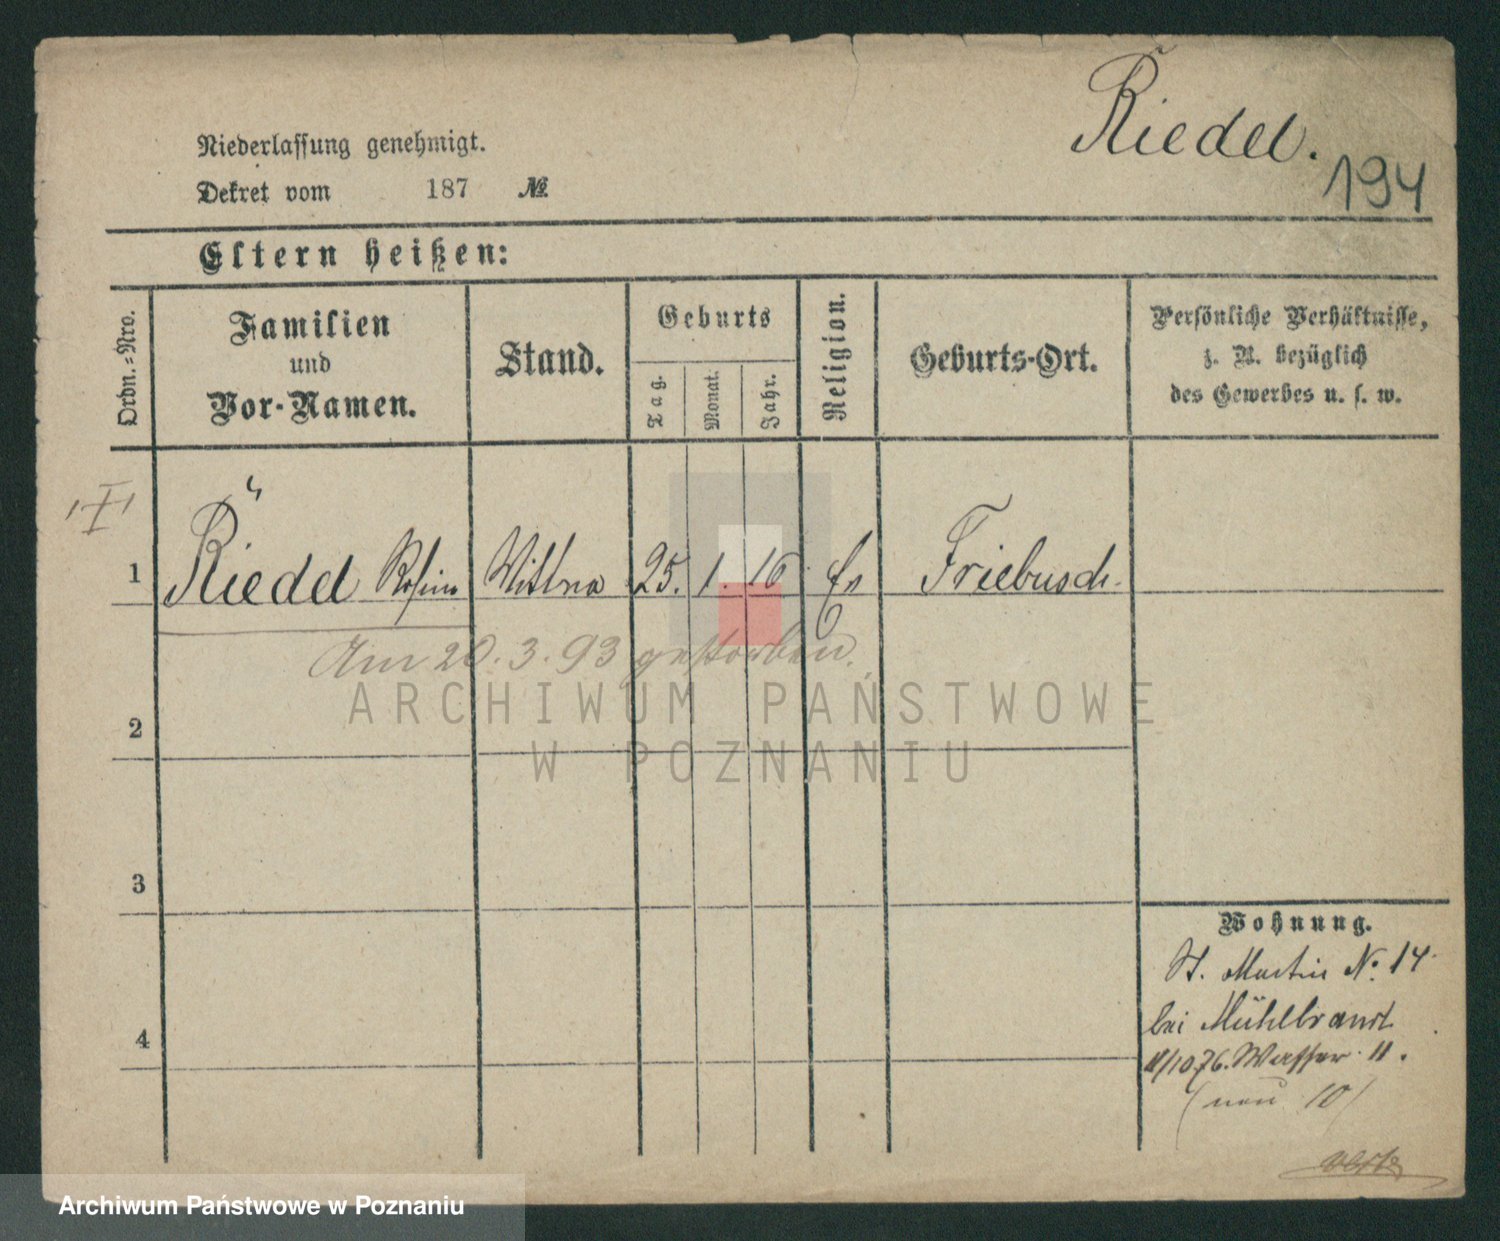 Riedel.
194
Niederlassung genehmigt.
Dekret vom 187 №
Eltern heißen:
Ordn.-Nro.
Familien
und
Vor-Namen.
Stand.
Geburts
Tag.
Monat.
Jahr.
Religion.
Geburts-Ort.
Persönliche Verhältnisse,
z. B. bezüglich
des Gewerbes u. s. w.
I
1 Riedel Rosine Wittwe 25. 1. 16 Ev Friebusch.
Am 20. 3. 93 gestorben.
ARCHIWUM PAŃSTWOWE
W POZNANIU
2
3
4
Wohnung.
St. Martin No. 14
bei Mühlbrandt
11/10 76. Wasser 11.
(neu 10)
Archiwum Państwowe w Poznaniu